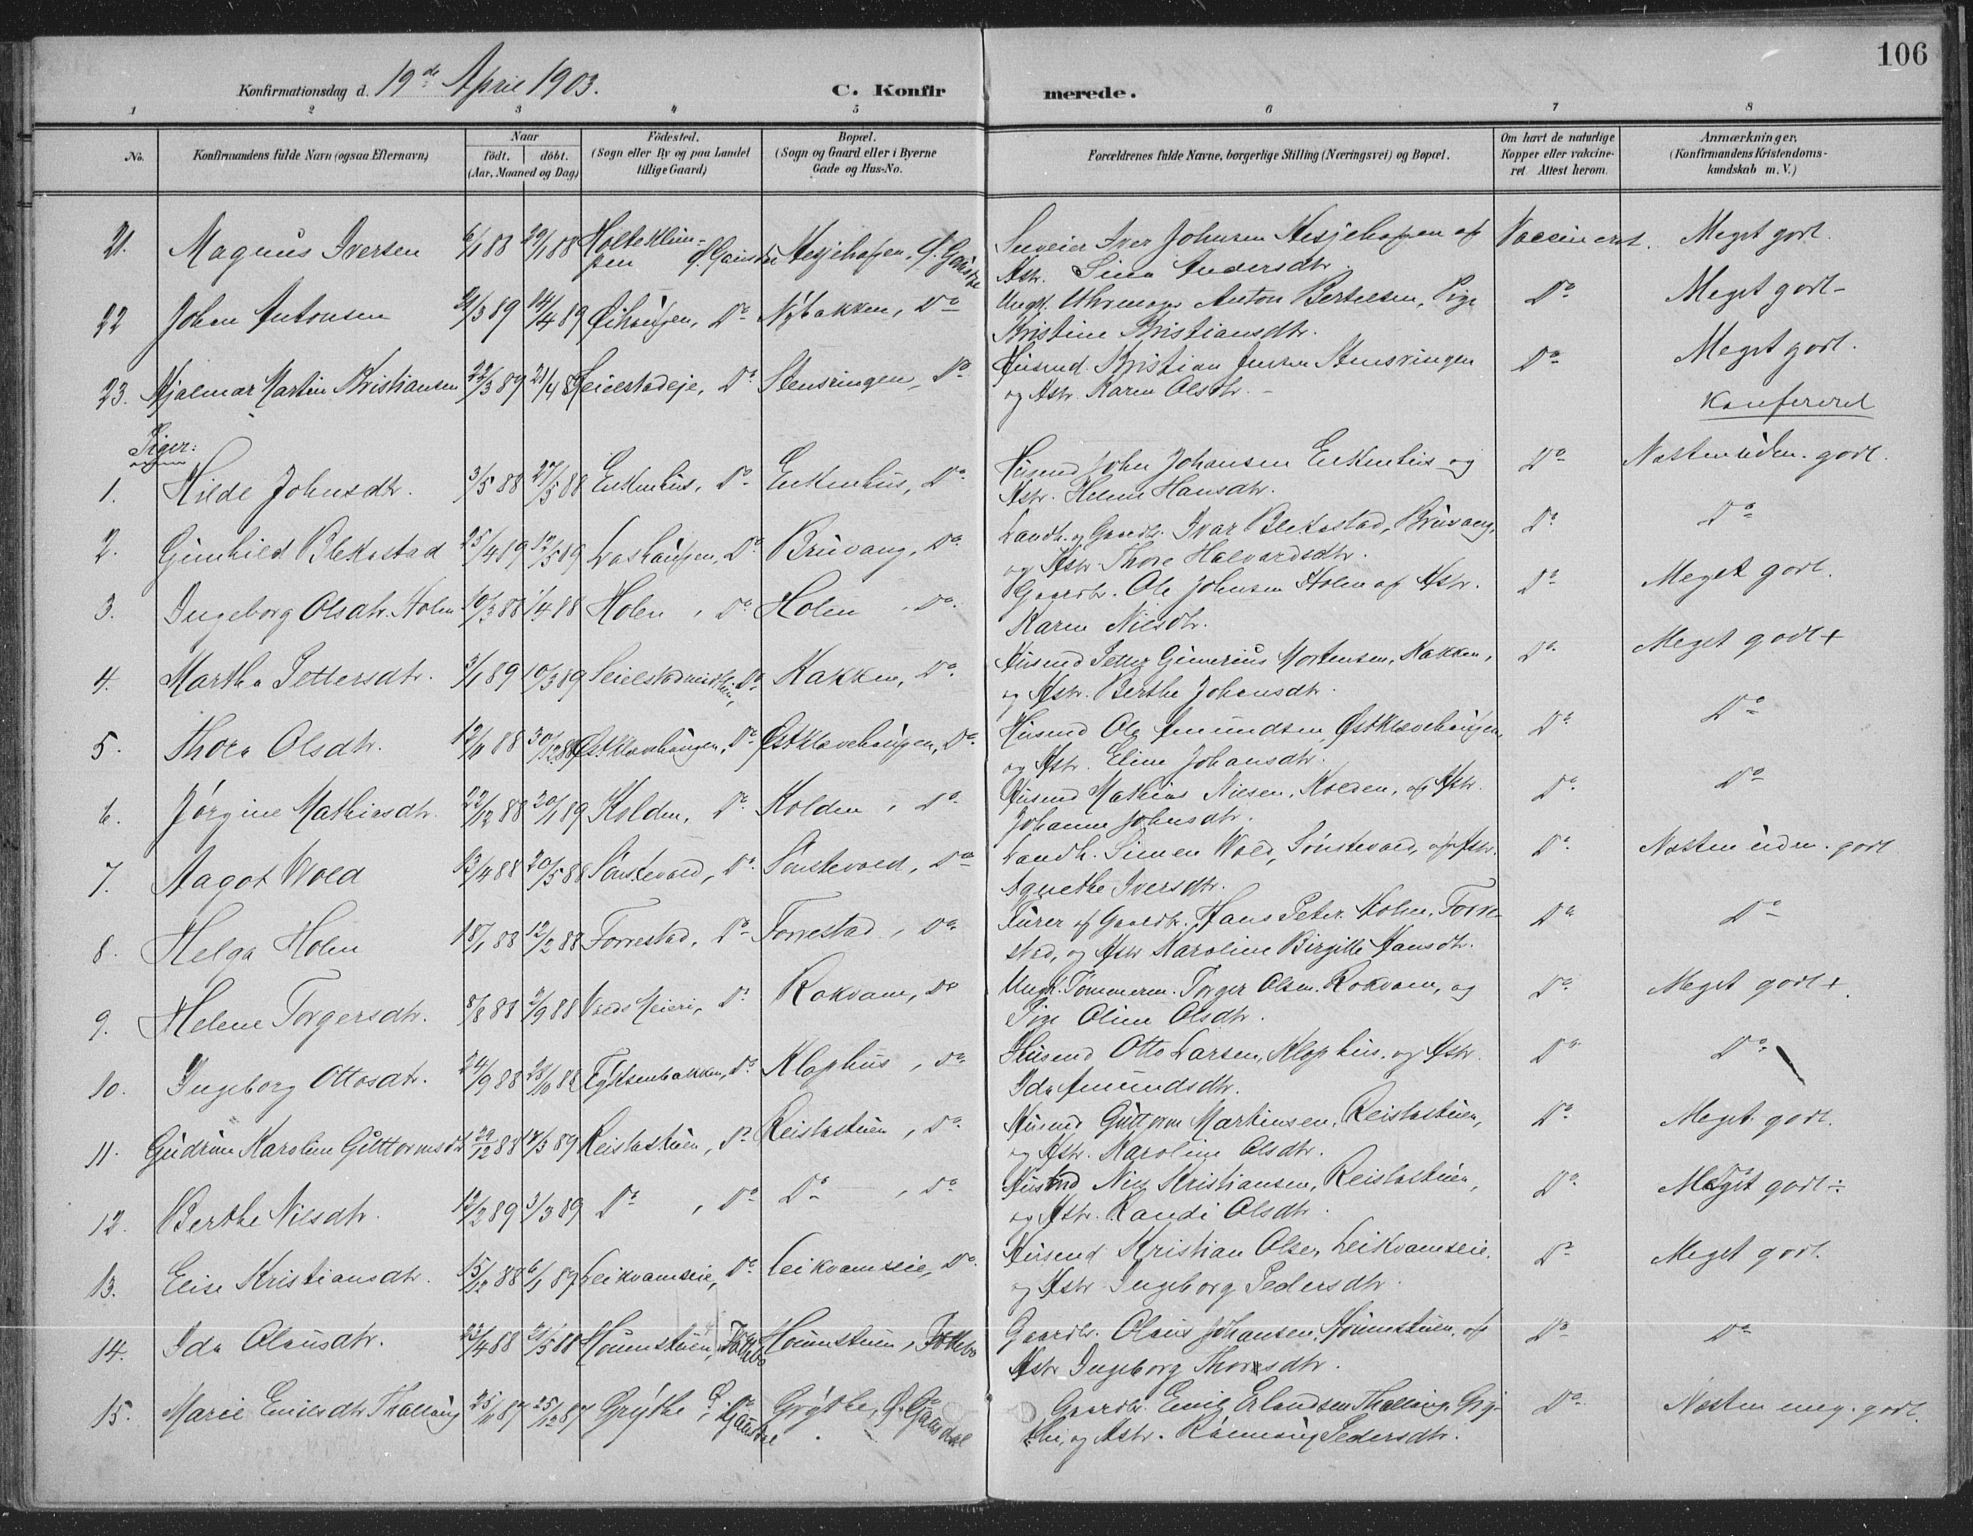 106
Konfirmationsdag d. 19de April 1903. C. Konfirmerede.
1 2 3 4 5 6 7 8
No. Konfirmandens fulde Navn (ogsaa Efternavn) Naar født. døbt. (Aar, Maaned og Dag) Fødested. (Sogn eller By og paa Landet tillige Gaard) Bopæl. (Sogn og Gaard eller i Byerne Gade og Hus-No. Forældrenes fulde Navne, borgerlige Stilling (Næringsvei) og Bopæl. Om havt de naturlige Kopper eller vakcineret Attest herom. Anmærkninger. (Konfirmandens Kristendomskundskab m. V.)
21. Magnus Iversen 29/1 88 Iver Johnsen af Vaccineret. Meget godt.
Kstr. Andersdtr.
22 Johan Antonsen 89 14/4 89 Do Nybakken, Do Anton Bertelsen, Pige Do Meget godt
Kristine Kristiansdtr.
23. Hjalmar Martin Kristiansen 22/3 89 21/4 89 Seielstadeje, Do Stensringen, Do Husmd. Kristian Jensen Stensringen Do Meget godt.
og Kstr. Karen Olsdtr.
Konfereret
Piger:
1. Hilde Johnsdtr. 3/5 88 27/5 88 Enkenhus, Do Enkenhus, Do Husmd John Johansen Enkenhus og Do Næsten udm. godt.
Kstr. Helene Hansdtr.
2. Gunhild Blekastad 25/4 89 12/5 89 Do Bruvang, Do Landh. og Gaardbr. Ivar Blekastad, Bruvang, Do Do
og Kstr Thore Halvardsdtr.
3. Ingeborg Olsdtr. Holen 10/3 88 1/4 88 Holen, Do Holen, Do Gaardbr. Ole Johnsen Holen af Kstr. Do Meget godt.
Karen Nilsdtr.
4. Martha Pettersdtr. 3/1 89 10/3 89 Do Bakken, Do Husmd Petter Gunerius Mortensen, Bakken, Do Meget godt +
og Kstr. Berthe Johansdtr.
5. Thora Olsdtr. 12/11 88 30/12 88 Østklævehaugen, Do Østklævehaugen, Do Husmd Ole Amundsen, Østklævehaugen, Do Do
og Kstr. Eline Johansdtr.
6. Jørgine Mathiasdtr. 22/12 88 20/1 89 Kolden, Do Kolden, Do Husmd Mathias Nilsen, Kolden, af Kstr. Do Do
Johanne Johnsdtr.
7. Aagot Wold 13/4 88 20/5 88 Sønstevold, Do Sønstevold, Do Landh. Simen Wold, Sønstevold, af Kstr. Do Næsten udm. godt
Agnethe Iversdtr.
8. Helga Holen 18/1 88 12/2 88 Forrestad, Do Forrestad, Do Furer og Gaardbr. Hans Peter Holen, Forre- Do Do
stad, og Kstr Karoline Birgitte Hansdtr.
9. Helene Torgersdtr. 8/8 88 2/9 88 Meieri, Do Rokvam, Do Ungk. Tømmerm. Torger Olsen Rokvam, og Do Meget godt +
Pige Oline Olsdtr.
10. Ingeborg Ottosdtr. 24/9 88 28/10 88 Do Klophus, Do Husmd Otto Larsen, Klophus og Kstr. Do Do
Ida Amundsdtr.
11. Gudrun Karoline Guttormsdtr 20/12 88 17/3 89 Reistastuen, Do Reistastuen, Do Husmd Guttorm Martinsen, Reistastuen, Do Meget godt.
og Kstr. Karoline Olsdtr.
12. Berthe Nilsdtr. 12/2 89 3/3 89 Do, Do Do, Do Husmd Nils Kristiansen, Reistastuen, Do Meget godt ÷
og Kstr. Randi Olsdtr.
13. Elise Kristiansdtr. 15/12 88 6/1 89 Leikvamseie, Do Leikvamseie, Do Husmd Kristian Olsen Leikvamseie Do Meget godt.
og Kstr Ingeborg Pedersdtr.
14. Ida Olausdtr. 23/4 88 21/5 88 Hounstuen, Hounstuen, Gaardbr. Olaus Johansen, Hounstuen, af Do Do
Kstr Ingeborg Thoresdtr.
15. Marie Emilsdtr Thallaug 25/11 87 25/12 87 Grythe, Ø. Gausdal Grythe, Ø. Gausdal Gaardbr. Emil Erlandsen Thallaug, Gry- Do Næsten meg. godt.
the, og Kstr. Rønnaug Pedersdtr.